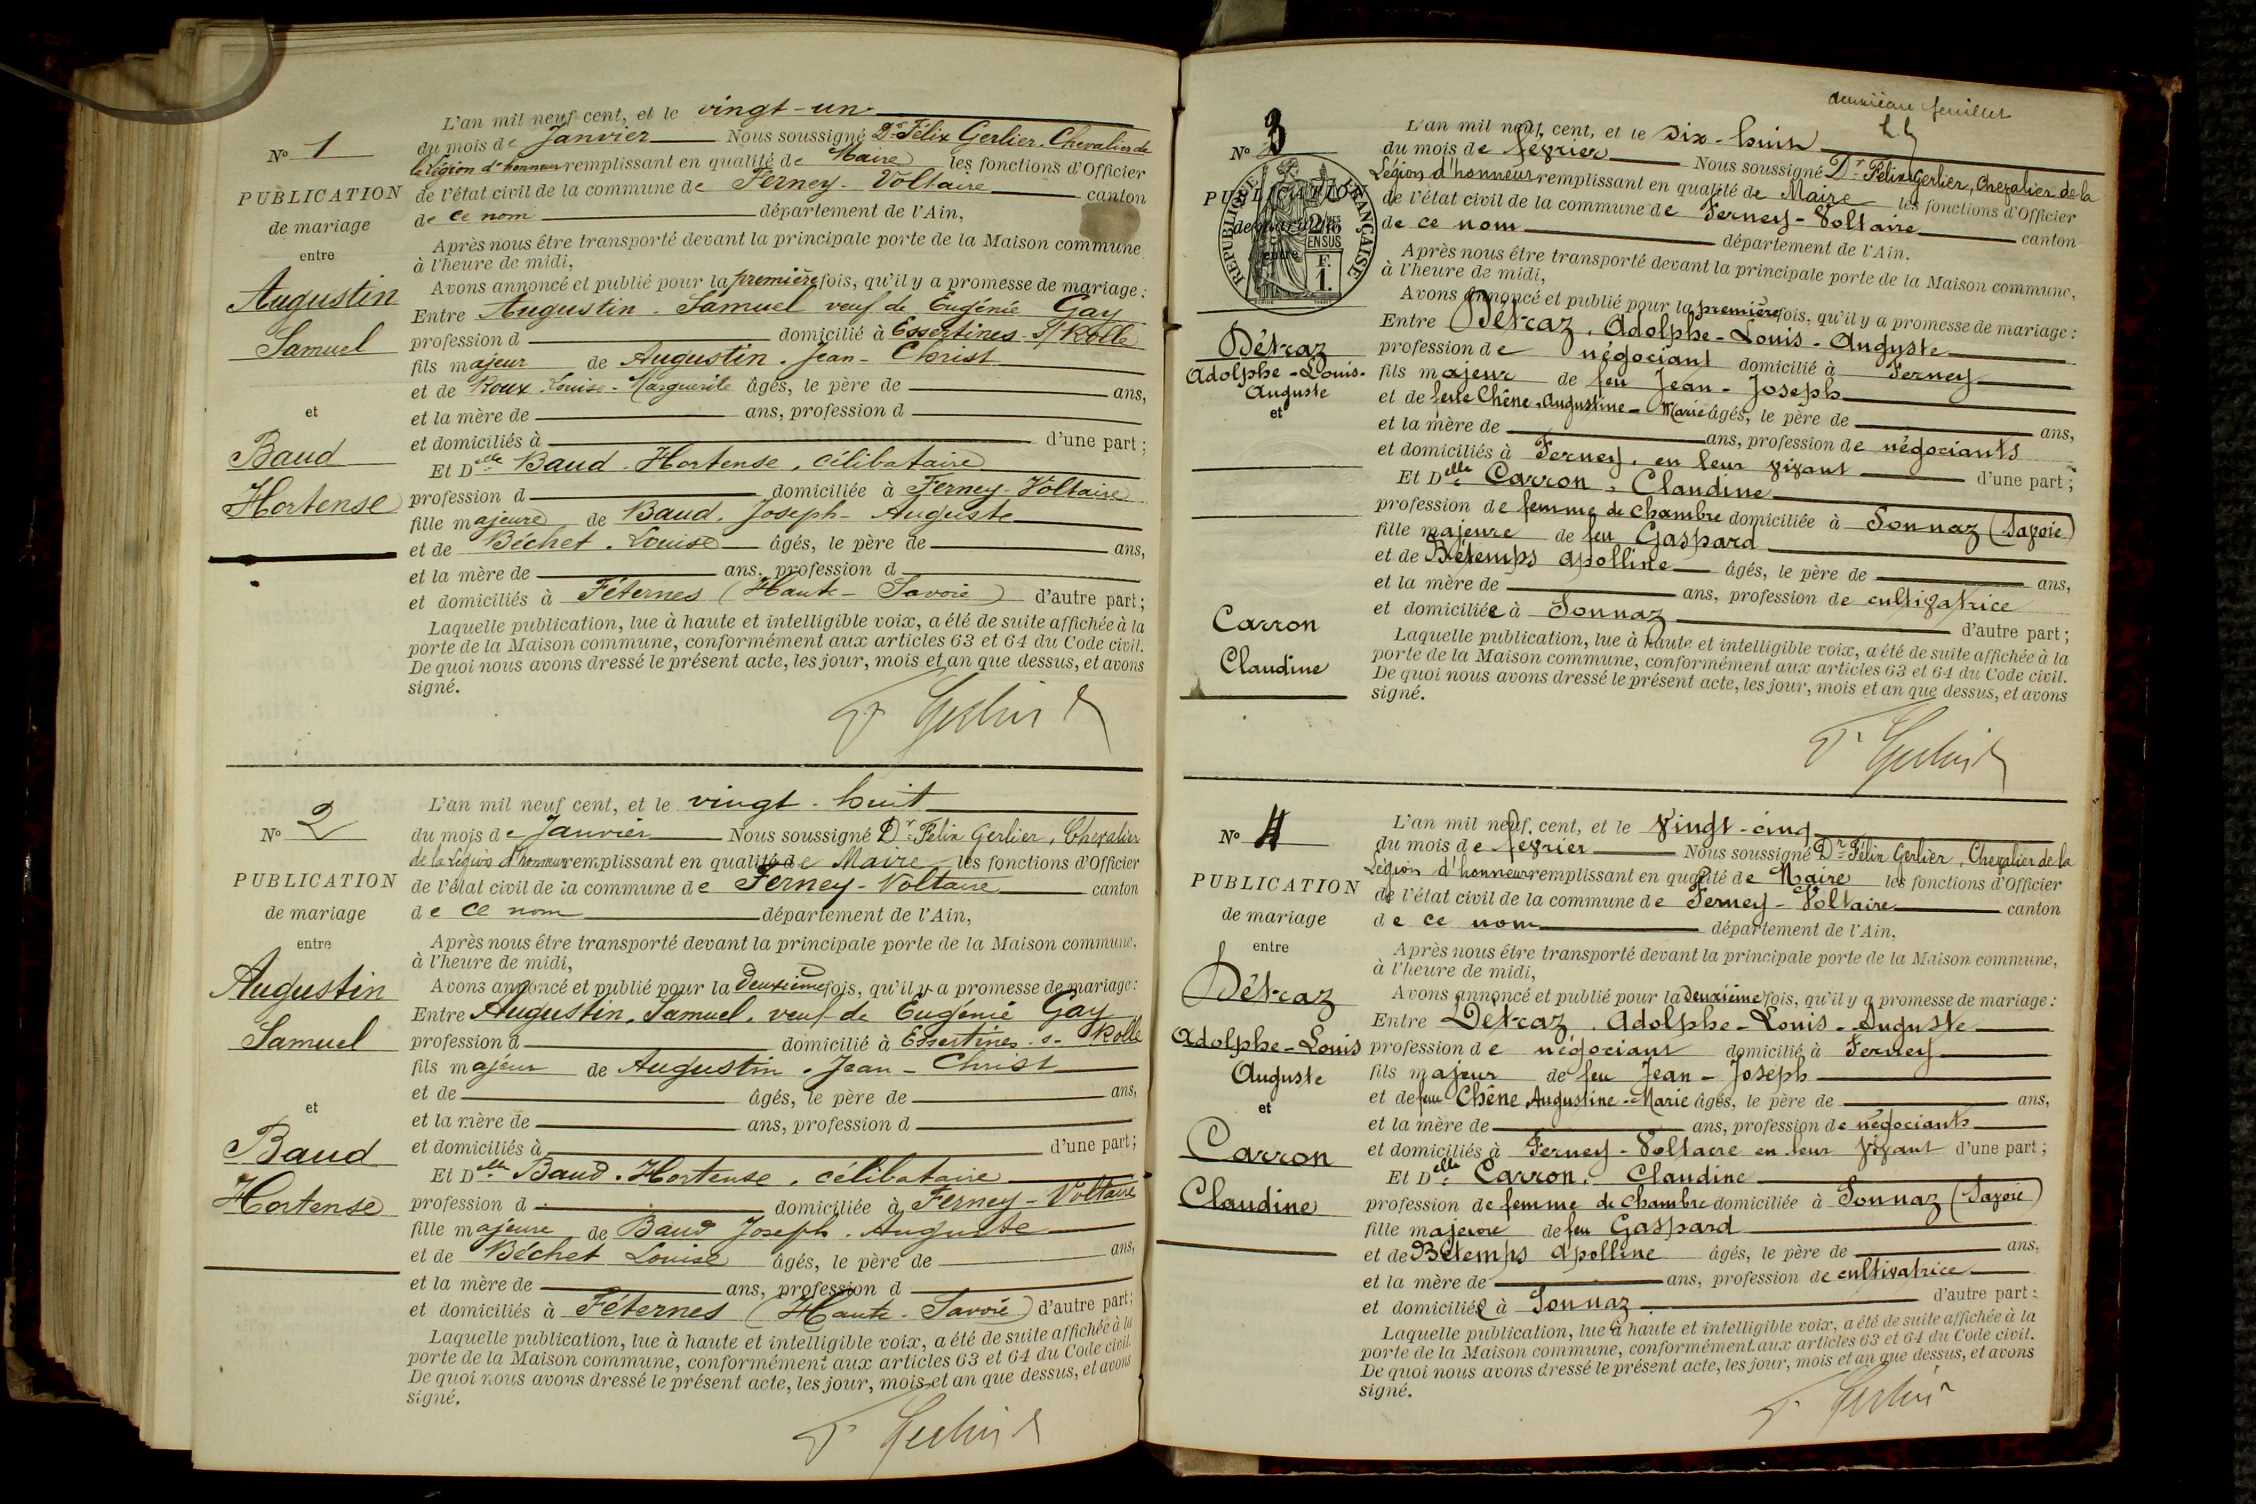 N° 1
PUBLICATION
de mariage
entre
Augustin
Samuel
et
Baud
Hortense
L'an mil neuf cent, et le vingt-un
du mois de Janvier Nous soussigné Dr Félix Gerlier, Chevalier de
la Légion d'honneur remplissant en qualité de Maire les fonctions d'Officier
de l'état civil de la commune de Ferney-Voltaire canton
de ce nom département de l'Ain,
Après nous être transporté devant la principale porte de la Maison commune
à l'heure de midi,
Avons annoncé et publié pour la première fois, qu'il y a promesse de mariage :
Entre Augustin. Samuel veuf de Eugénie Gay
profession d domicilié à Essertines s/ Rolle
fils majeur de Augustin. Jean-Christ
et de Roux. Louise-Marguerite âgés, le père de ans,
et la mère de ans, profession d
et domiciliés à d'une part ;
Et Delle Baud. Hortense, célibataire
profession d domiciliée à Ferney-Voltaire
fille majeure de Baud. Joseph-Auguste
et de Béchet. Louise âgés, le père de ans,
et la mère de ans, profession d
et domiciliés à Féternes (Haute-Savoie) d'autre part ;
Laquelle publication, lue à haute et intelligible voix, a été de suite affichée à la
porte de la Maison commune, conformément aux articles 63 et 64 du Code civil.
De quoi nous avons dressé le présent acte, les jour, mois et an que dessus, et avons
signé.
F Gerlier
N° 2
PUBLICATION
de mariage
entre
Augustin
Samuel
et
Baud
Hortense
L'an mil neuf cent, et le vingt-huit
du mois de Janvier Nous soussigné Dr Félix Gerlier, Chevalier
de la Légion d'honneur remplissant en qualité de Maire les fonctions d'Officier
de l'état civil de la commune de Ferney-Voltaire canton
de ce nom département de l'Ain,
Après nous être transporté devant la principale porte de la Maison commune,
à l'heure de midi,
Avons annoncé et publié pour la deuxième fois, qu'il y a promesse de mariage :
Entre Augustin, Samuel, veuf de Eugénie Gay
profession d domicilié à Essertines-s-Rolle
fils majeur de Augustin. Jean-Christ
et de âgés, le père de ans,
et la mère de ans, profession d
et domiciliés à d'une part ;
Et Delle Baud. Hortense, célibataire
profession d domiciliée à Ferney-Voltaire
fille majeure de Baud Joseph. Auguste
et de Béchet Louise âgés, le père de ans,
et la mère de ans, profession d
et domiciliés à Féternes (Haute-Savoie) d'autre part ;
Laquelle publication, lue à haute et intelligible voix, a été de suite affichée à la
porte de la Maison commune, conformément aux articles 63 et 64 du Code civil.
De quoi nous avons dressé le présent acte, les jour, mois et an que dessus, et avons
signé.
F Gerlier
deuxième feuillet
N° 3
PUBLICATION
de mariage
entre
RÉPUBLIQUE FRANÇAISE
2/10
EN SUS
F.
1.
Détraz
Adolphe-Louis-
Auguste
et
Carron
Claudine
L'an mil neuf cent, et le dix-huit
du mois de février Nous soussigné Dr Félix Gerlier, Chevalier de la
Légion d'honneur remplissant en qualité de Maire les fonctions d'Officier
de l'état civil de la commune de Ferney-Voltaire canton
de ce nom département de l'Ain.
Après nous être transporté devant la principale porte de la Maison commune,
à l'heure de midi,
Avons annoncé et publié pour la première fois, qu'il y a promesse de mariage :
Entre Détraz, Adolphe-Louis-Auguste
profession de négociant domicilié à Ferney
fils majeur de feu Jean-Joseph
et de feue Chêne, Augustine-Marie âgés, le père de ans,
et la mère de ans, profession de négociants
et domiciliés à Ferney, en leur vivant d'une part ;
Et Delle Carron, Claudine
profession de femme de chambre domiciliée à Sonnaz (Savoie)
fille majeure de feu Gaspard
et de Bétemps Apolline âgés, le père de ans,
et la mère de ans, profession de cultivatrice
et domiciliée à Sonnaz d'autre part ;
Laquelle publication, lue à haute et intelligible voix, a été de suite affichée à la
porte de la Maison commune, conformément aux articles 63 et 64 du Code civil.
De quoi nous avons dressé le présent acte, les jour, mois et an que dessus, et avons
signé.
F Gerlier
N° 4
PUBLICATION
de mariage
entre
Détraz
Adolphe-Louis
Auguste
et
Carron
Claudine
L'an mil neuf cent, et le vingt-cinq
du mois de février Nous soussigné Dr Félix Gerlier, Chevalier de la
Légion d'honneur remplissant en qualité de Maire les fonctions d'Officier
de l'état civil de la commune de Ferney-Voltaire canton
de ce nom département de l'Ain,
Après nous être transporté devant la principale porte de la Maison commune,
à l'heure de midi,
Avons annoncé et publié pour la deuxième fois, qu'il y a promesse de mariage :
Entre Détraz, Adolphe-Louis-Auguste
profession de négociant domicilié à Ferney
fils majeur de feu Jean-Joseph
et de feue Chêne Augustine-Marie âgés, le père de ans,
et la mère de ans, profession de négociants
et domiciliés à Ferney-Voltaire en leur vivant d'une part ;
Et Delle Carron, Claudine
profession de femme de chambre domiciliée à Sonnaz (Savoie)
fille majeure de feu Gaspard
et de Bétemps Apolline âgés, le père de ans,
et la mère de ans, profession de cultivatrice
et domiciliée à Sonnaz d'autre part ;
Laquelle publication, lue à haute et intelligible voix, a été de suite affichée à la
porte de la Maison commune, conformément aux articles 63 et 64 du Code civil.
De quoi nous avons dressé le présent acte, les jour, mois et an que dessus, et avons
signé.
F Gerlier